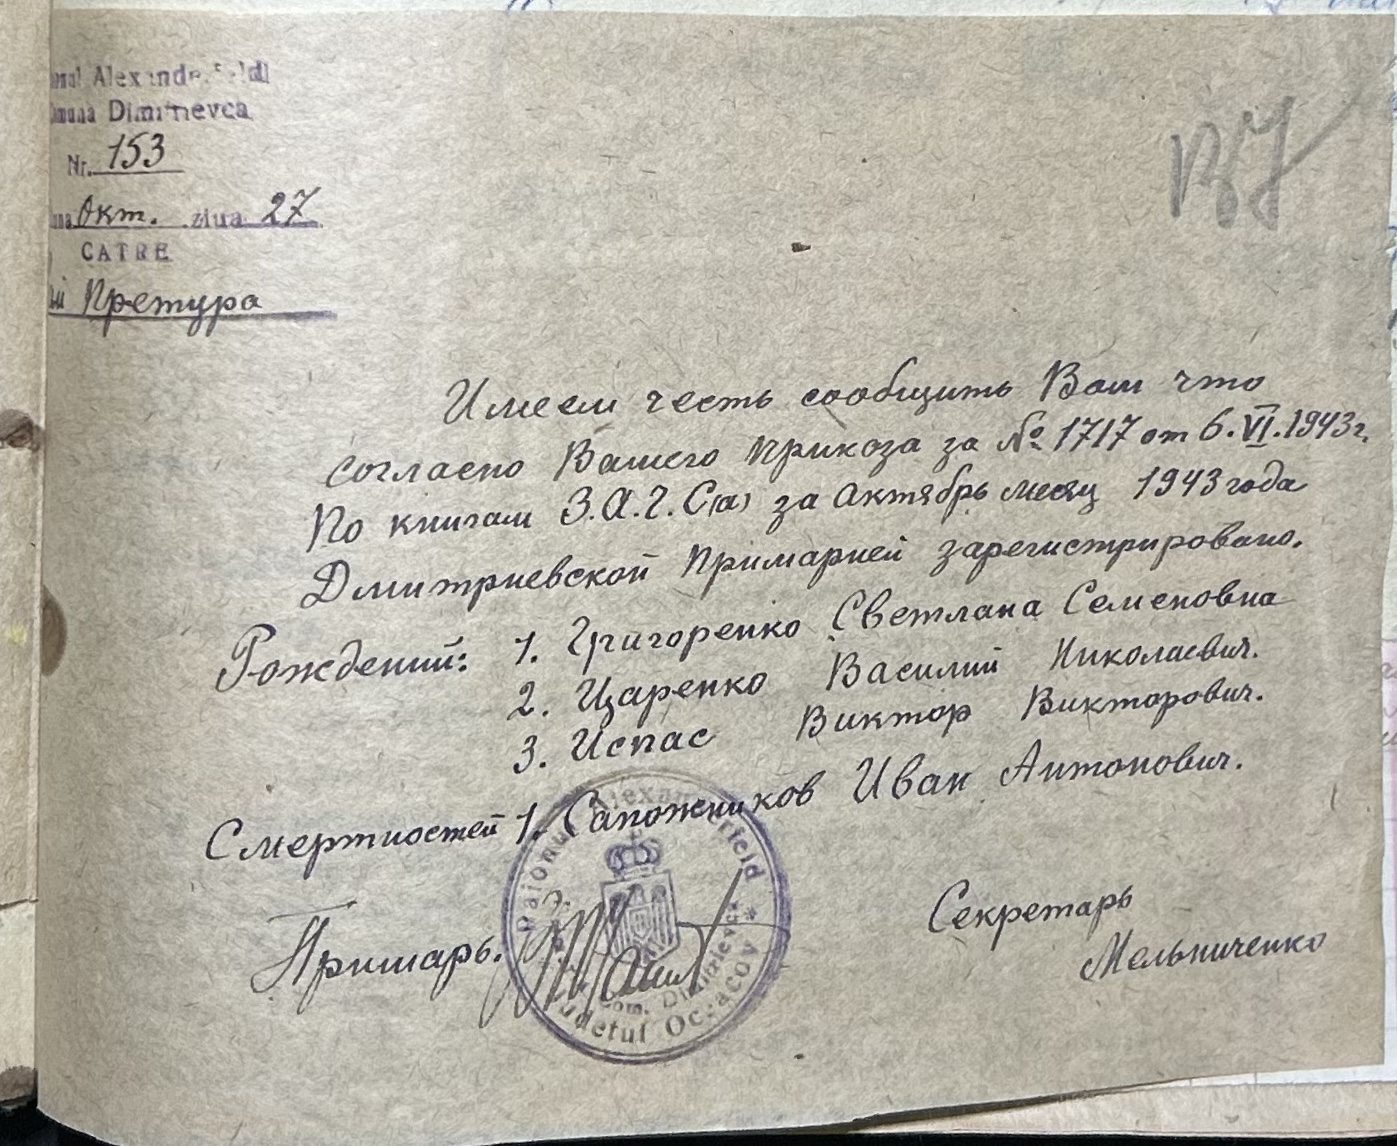 Alexanderfeld
Dimitrievca
Nr. 153
Окт. ziua 27
CATRE
Претура
Имеем честь сообщить Вам что
согласно Вашего приказа за № 1717 от 6.VI.1943г.
По книгам З.А.Г.С(а) за актябрь месяц 1943 года
Дмитриевской Примарией зарегистрировано.
Рождений: 1. Григоренко Светлана Семеновна
2. Царенко Василий Николаевич.
3. Испас Виктор Викторович.
Смертностей 1. Сапожников Иван Антонович.
Примарь.
Секретарь
Мельниченко
Raionul Alexanderfeld * Judetul Oceacov *
Com. Dimitrievca